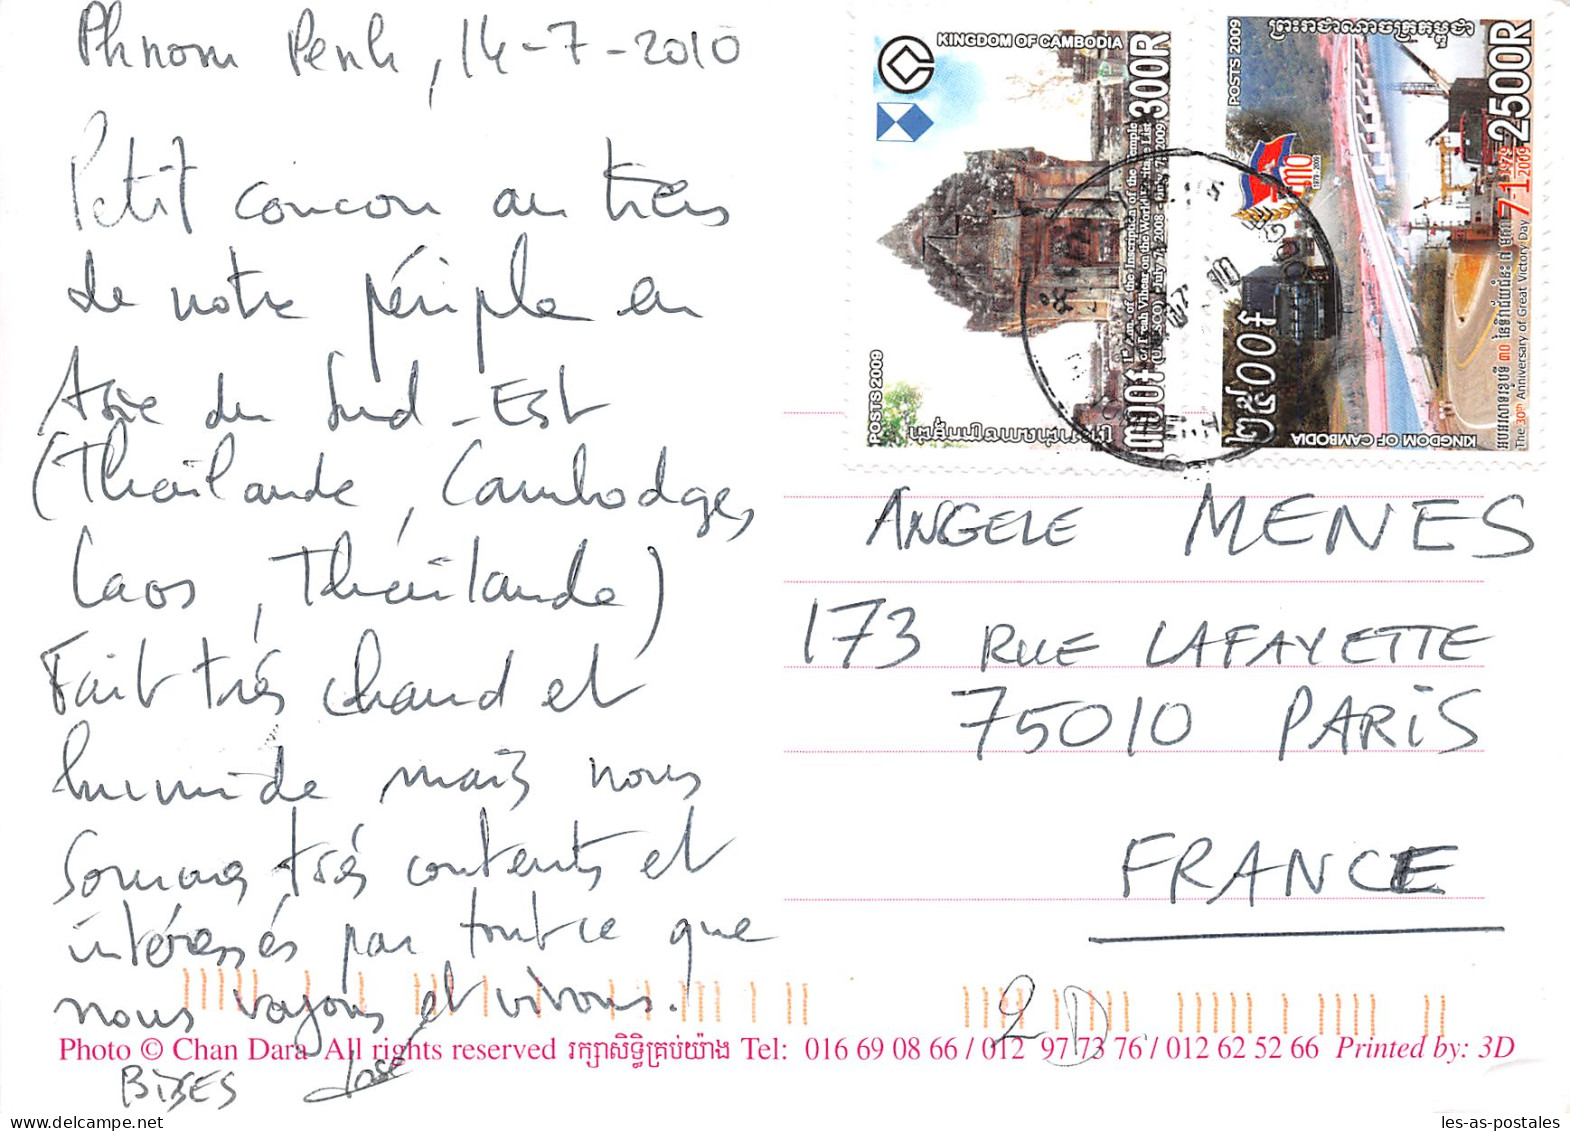 Phnom Penh, 14-7-2010
Petit coucou au tiers
de notre périple en
Asie du Sud-Est
(Thaïlande, Cambodge,
Laos, Thaïlande)
Fait très chaud et
humide mais nous
sommes très contents et
intéressés par tout ce que
nous voyons et vivons.
BISES José
KINGDOM OF CAMBODIA
300R
POSTS 2009
៣០០៛
ព្រះរាជាណាចក្រកម្ពុជា
POSTS 2009
2500R
២៥០០៛
KINGDOM OF CAMBODIA
The 30th Anniversary of Great Victory Day 7-1 1979 2009
ANGELE MENES
173 RUE LAFAYETTE
75010 PARIS
FRANCE
2D
Photo © Chan Dara All rights reserved រក្សាសិទ្ធិគ្រប់យ៉ាង Tel: 016 69 08 66 / 012 97 73 76 / 012 62 52 66 Printed by: 3D
les-as-postales